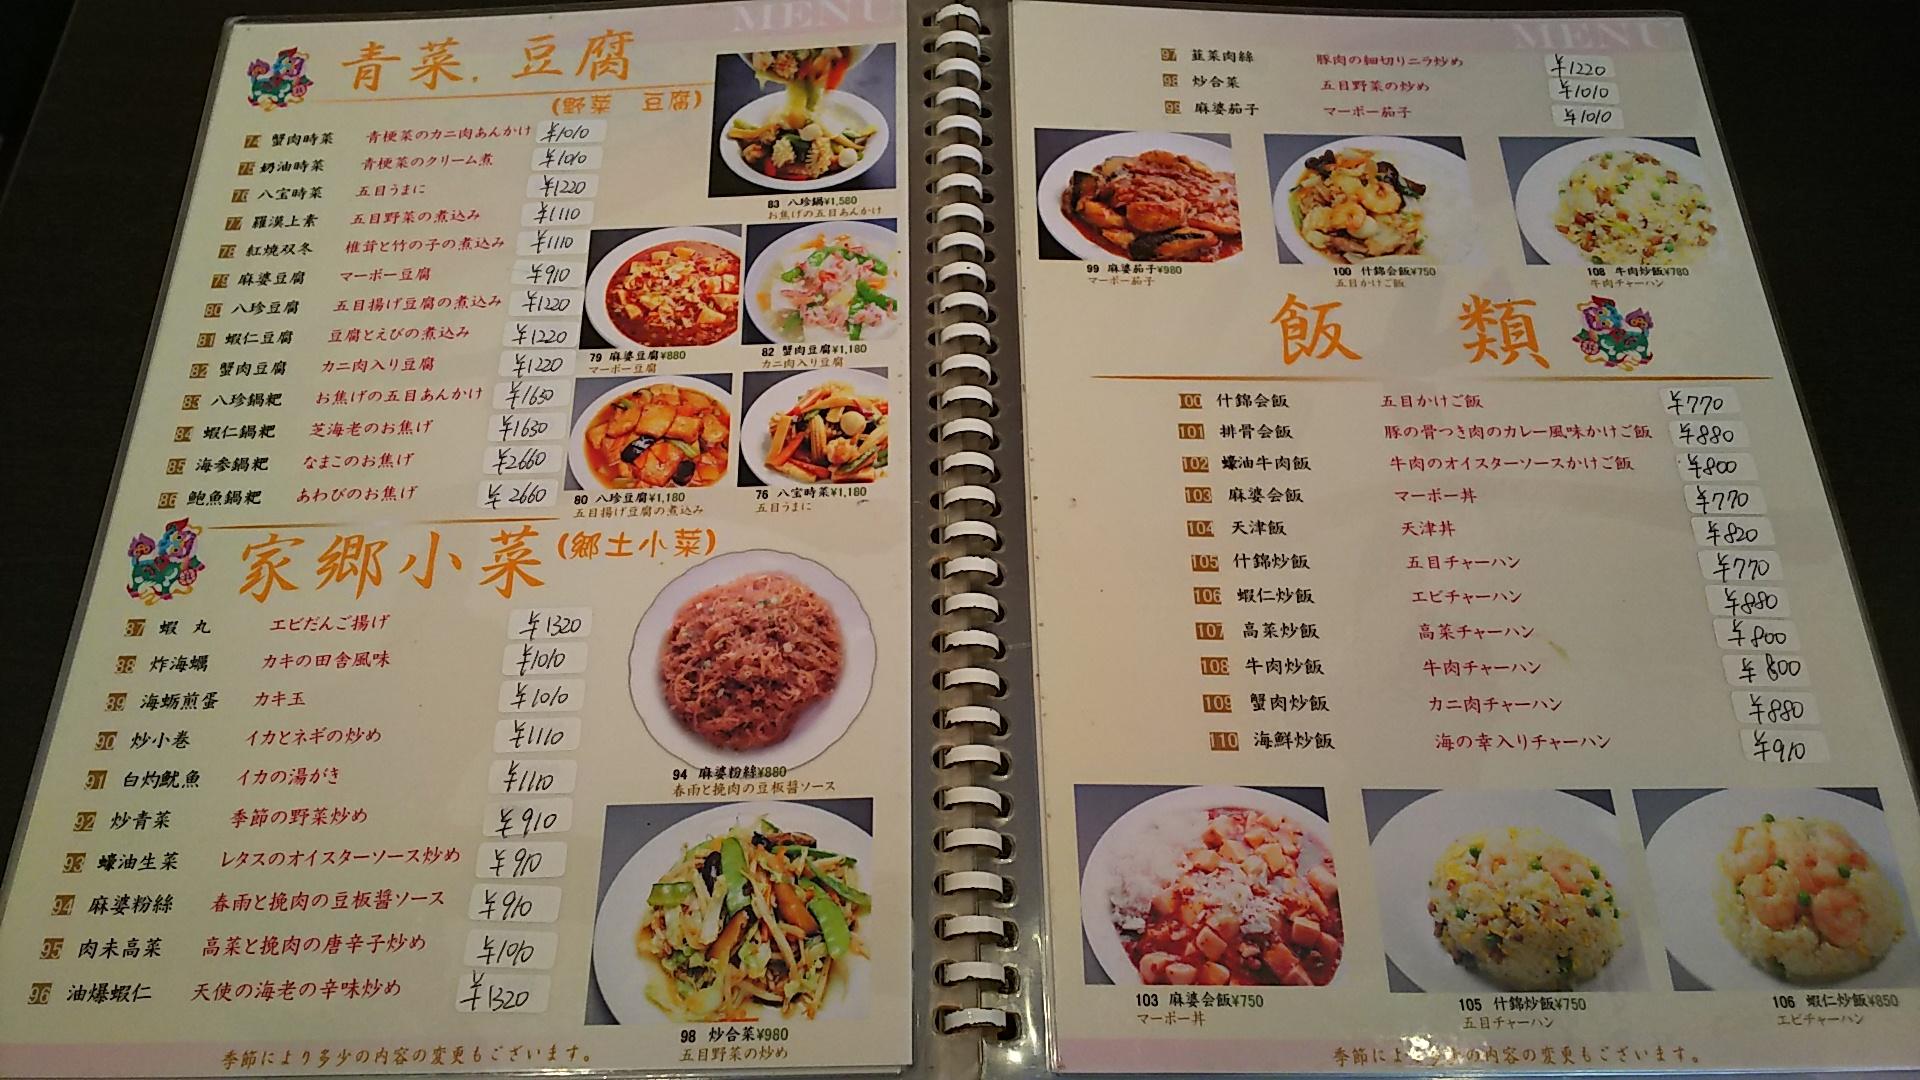 MENU
青菜．豆腐
(野菜 豆腐)
74 蟹肉時菜 青梗菜のカニ肉あんかけ ¥1010
75 奶油時菜 青梗菜のクリーム煮 ¥1010
76 八宝時菜 五目うまに ¥1220
77 羅漢上素 五目野菜の煮込み ¥1110
78 紅燒双冬 椎茸と竹の子の煮込み ¥1110
79 麻婆豆腐 マーボー豆腐 ¥910
80 八珍豆腐 五目揚げ豆腐の煮込み ¥1220
81 蝦仁豆腐 豆腐とえびの煮込み ¥1220
82 蟹肉豆腐 カニ肉入り豆腐 ¥1220
83 八珍鍋粑 お焦げの五目あんかけ ¥1630
84 蝦仁鍋粑 芝海老のお焦げ ¥1630
85 海参鍋粑 なまこのお焦げ ¥2660
86 鮑魚鍋粑 あわびのお焦げ ¥2660
83 八珍鍋¥1,580
お焦げの五目あんかけ
79 麻婆豆腐¥880
マーボー豆腐
82 蟹肉豆腐¥1,180
カニ肉入り豆腐
80 八珍豆腐¥1,180
五目揚げ豆腐の煮込み
76 八宝時菜¥1,180
五目うまに
家郷小菜(郷土小菜)
87 蝦丸 エビだんご揚げ ¥1320
88 炸海蠣 カキの田舎風味 ¥1010
89 海蛎煎蛋 カキ玉 ¥1010
90 炒小巻 イカとネギの炒め ¥1110
91 白灼魷魚 イカの湯がき ¥1110
92 炒青菜 季節の野菜炒め ¥910
93 蠔油生菜 レタスのオイスターソース炒め ¥910
94 麻婆粉絲 春雨と挽肉の豆板醤ソース ¥910
95 肉未高菜 高菜と挽肉の唐辛子炒め ¥1010
96 油爆蝦仁 天使の海老の辛味炒め ¥1320
94 麻婆粉絲¥880
春雨と挽肉の豆板醤ソース
98 炒合菜¥980
五目野菜の炒め
季節により多少の内容の変更もございます。
MENU
97 韮菜肉絲 豚肉の細切りニラ炒め ¥1220
98 炒合菜 五目野菜の炒め ¥1010
99 麻婆茄子 マーボー茄子 ¥1010
99 麻婆茄子¥980
マーボー茄子
100 什錦会飯¥750
五目かけご飯
108 牛肉炒飯¥780
牛肉チャーハン
飯類
100 什錦会飯 五目かけご飯 ¥770
101 排骨会飯 豚の骨つき肉のカレー風味かけご飯 ¥880
102 蠔油牛肉飯 牛肉のオイスターソースかけご飯 ¥800
103 麻婆会飯 マーボー丼 ¥770
104 天津飯 天津丼 ¥820
105 什錦炒飯 五目チャーハン ¥770
106 蝦仁炒飯 エビチャーハン ¥880
107 高菜炒飯 高菜チャーハン ¥800
108 牛肉炒飯 牛肉チャーハン ¥800
109 蟹肉炒飯 カニ肉チャーハン ¥880
110 海鮮炒飯 海の幸入りチャーハン ¥910
103 麻婆会飯¥750
マーボー丼
105 什錦炒飯¥750
五目チャーハン
106 蝦仁炒飯¥850
エビチャーハン
季節により多少の内容の変更もございます。